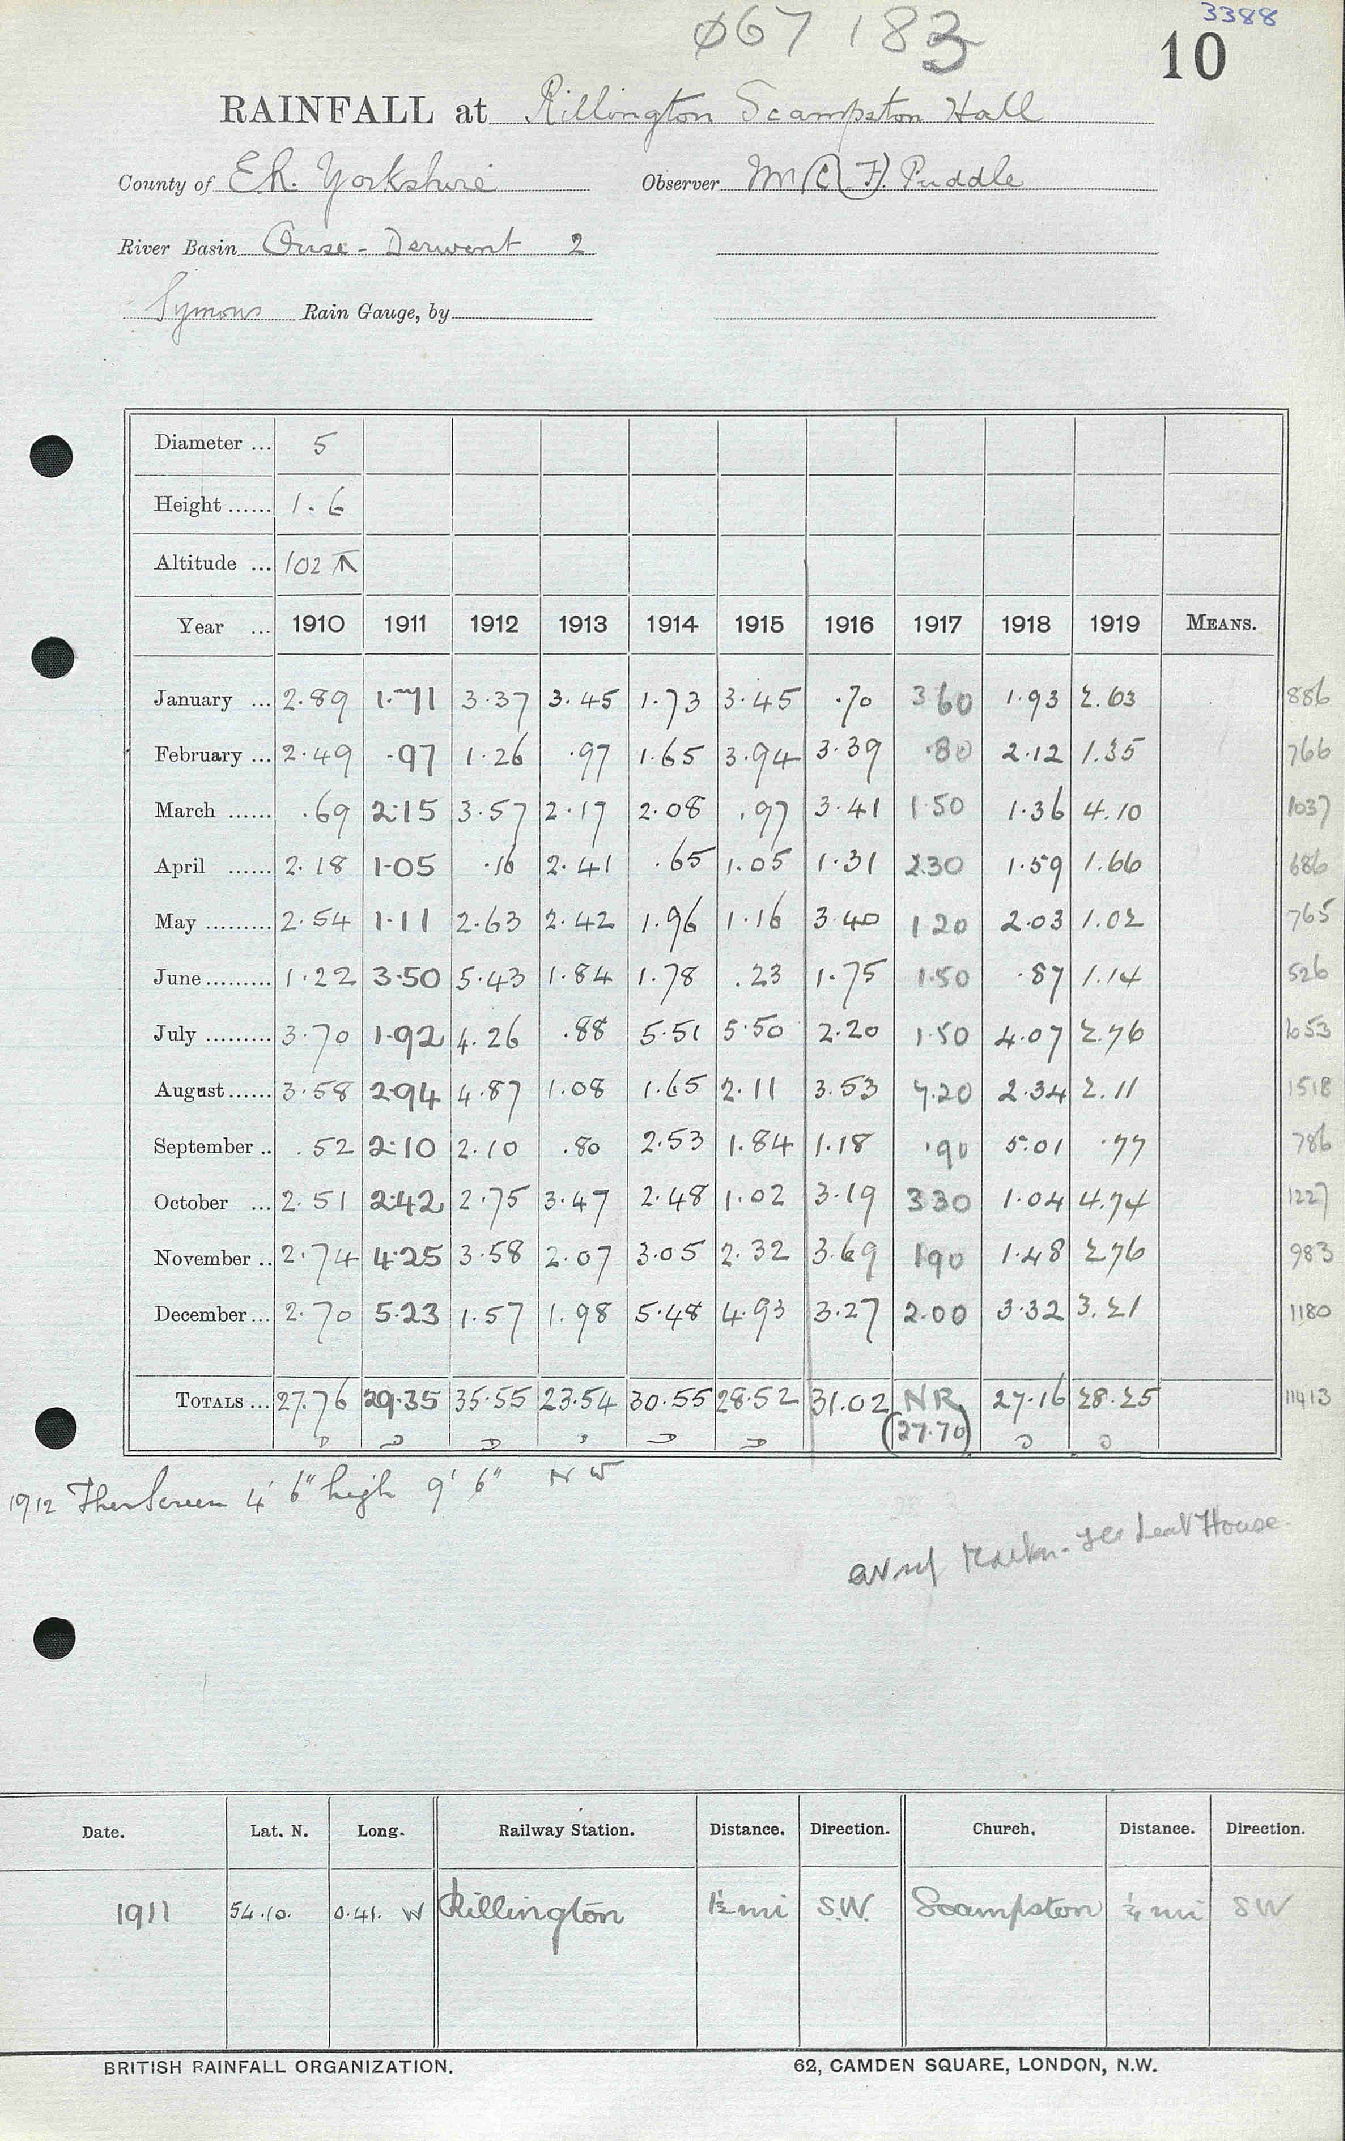 3388
067 183
10
RAINFALL at Rillington Scampston Hall
County of E.R. Yorkshire Observer Mr (C) F. Puddle
River Basin Ouse - Derwent 2
Symons Rain Gauge, by
Diameter ... 5
Height ...... 1.6
Altitude ... 102
Year ... 1910 1911 1912 1913 1914 1915 1916 1917 1918 1919 MEANS.
January ... 2.89 1.71 3.37 3.45 1.73 3.45 .70 3 60 1.93 2.63 886
February ... 2.49 .97 1.26 .97 1.65 3.94 3.39 .80 2.12 1.35 766
March ...... .69 2.15 3.57 2.17 2.08 .97 3.41 1.50 1.36 4.10 1037
April ...... 2.18 1.05 .16 2.41 .65 1.05 1.31 2.30 1.59 1.66 686
May ......... 2.54 1.11 2.63 2.42 1.96 1.16 3.40 1 20 2.03 1.02 765
June ......... 1.22 3.50 5.43 1.84 1.78 .23 1.75 1.50 .87 1.14 526
July ......... 3.70 1.92 4.26 .88 5.51 5.50 2.20 1.50 4.07 2.76 1053
August ...... 3.58 2.94 4.87 1.08 1.65 2.11 3.53 7.20 2.34 2.11 1518
September .. .52 2.10 2.10 .80 2.53 1.84 1.18 .90 5.01 .77 786
October ... 2.51 2.42 2.75 3.47 2.48 1.02 3.19 3 30 1.04 4.74 1227
November .. 2.74 4.25 3.58 2.07 3.05 2.32 3.69 1 90 1.48 2.76 983
December ... 2.70 5.23 1.57 1.98 5.48 4.93 3.27 2.00 3.32 3.21 1180
TOTALS ... 27.76 29.35 35.55 23.54 30.55 28.52 31.02 NR 27.16 28.25 11413
(27.70)
1912 Ther Screen 4' 6" high 9' 6" NW
House
Date. Lat. N. Long. Railway Station. Distance. Direction. Church. Distance. Direction.
1911 54.10. 0.41. W Rillington 1½ mi S.W. Scampston ¼ mi SW
BRITISH RAINFALL ORGANIZATION. 62, CAMDEN SQUARE, LONDON, N.W.